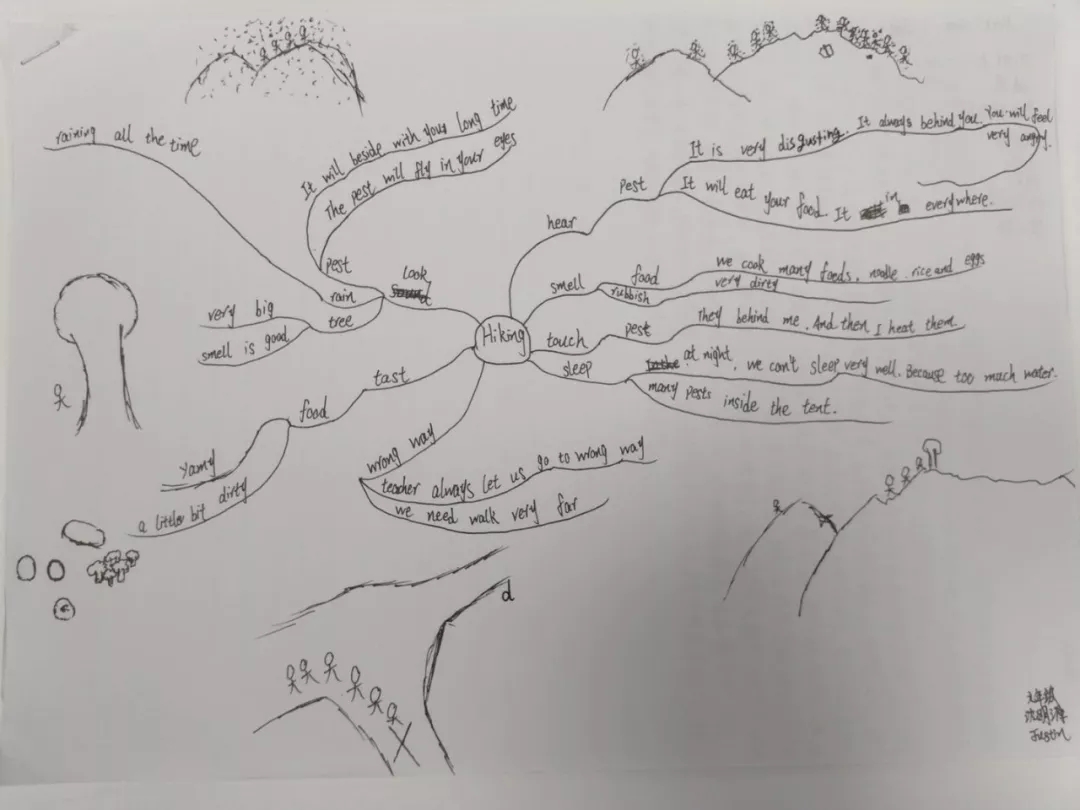 Hiking
Look
pest
It will beside with your long time
The pest will fly in your eyes
rain
raining all the time
tree
very big
smell is good
tast
food
yamy
a little bit dirty
wrong way
teacher always let us go to wrong way
we need walk very far
hear
pest
It is very disgusting. It always behind you. You will feel
very angry.
It will eat your food. It in everywhere.
smell
food
we cook many foods, noodle, rice and eggs
rubbish
very dirty
touch
pest
They behind me. And then I heat them.
sleep
at night, we can't sleep very well. Because too much water.
many pests inside the tent.
d
六年级
Justin